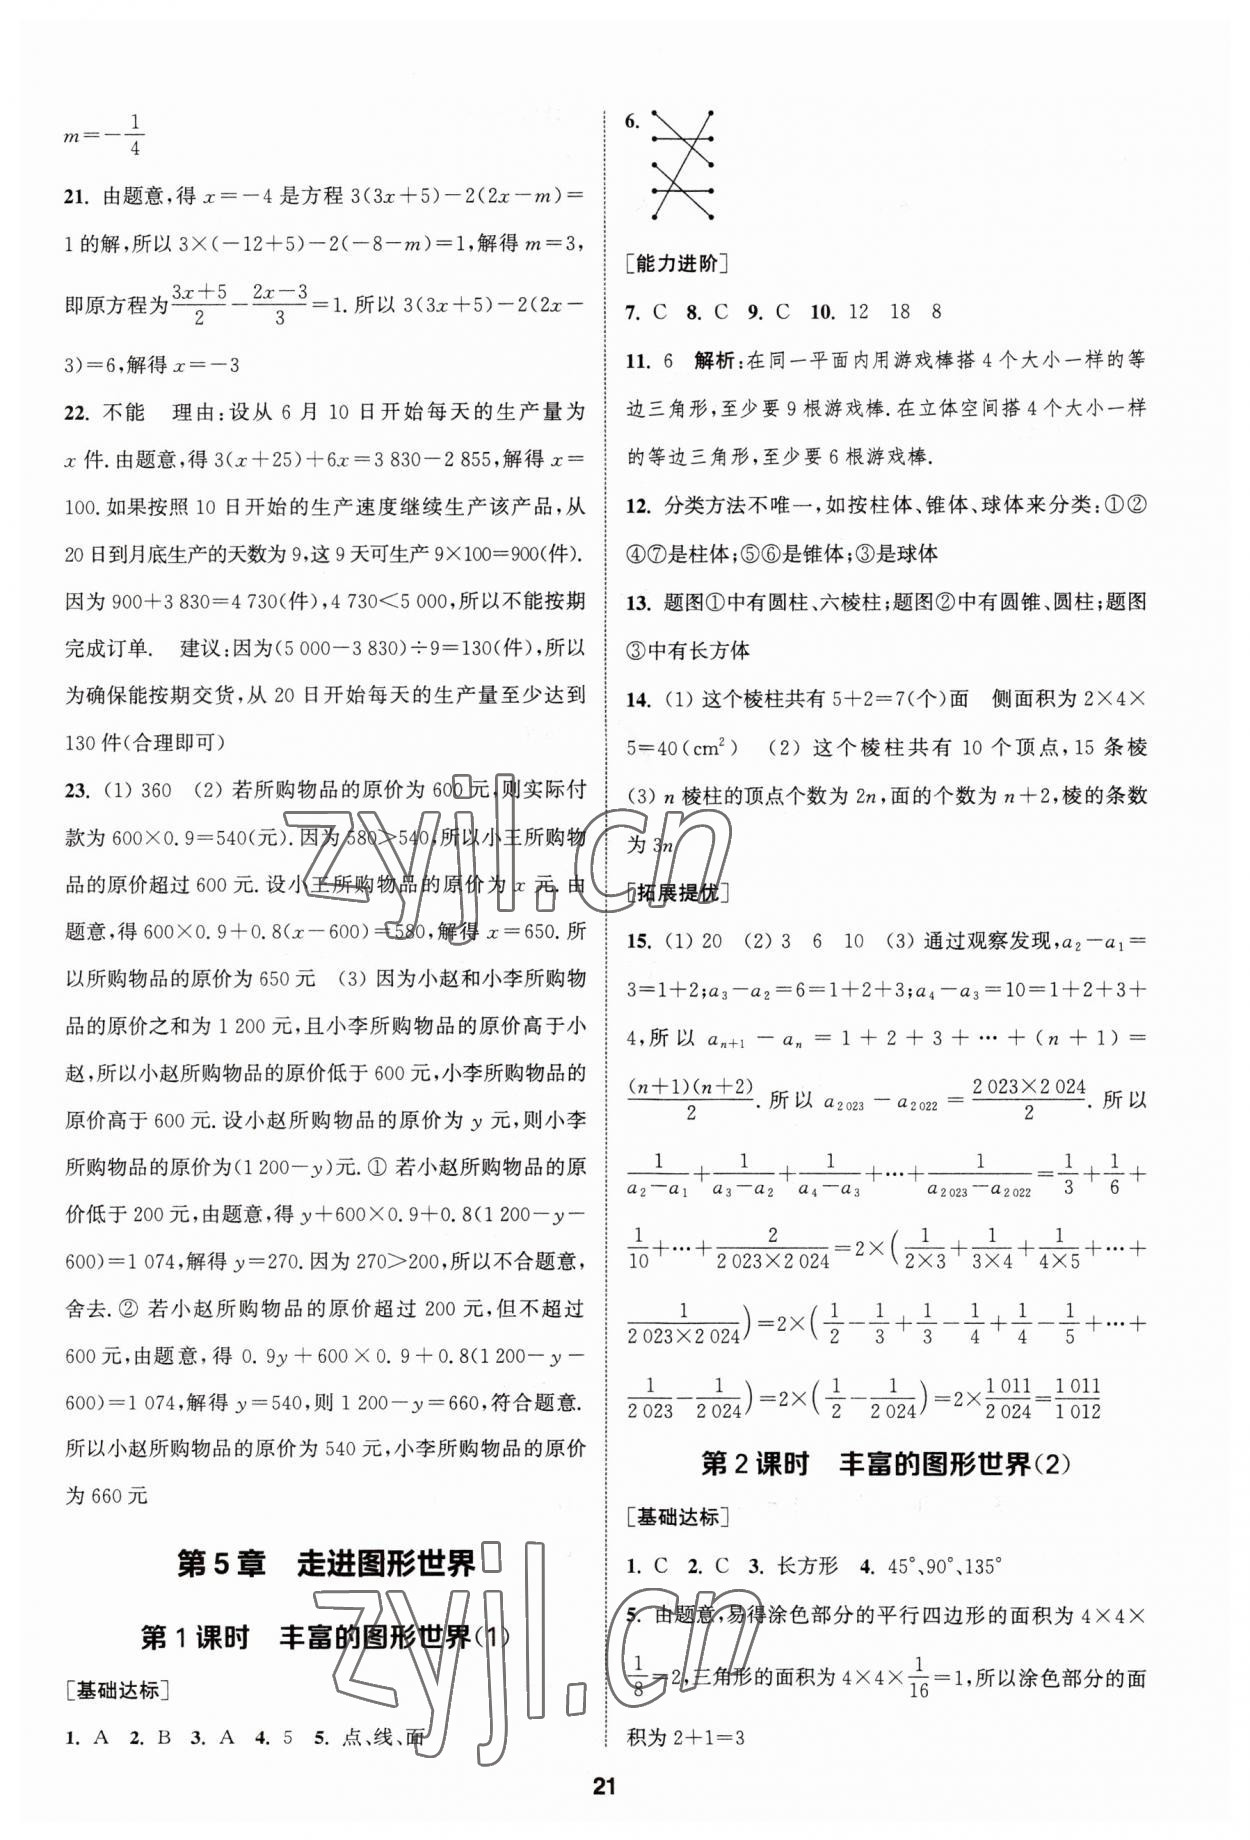 m=-1/4
21. 由题意,得 x=-4 是方程 3(3x+5)-2(2x-m)=
1 的解,所以 3×(-12+5)-2(-8-m)=1,解得 m=3,
即原方程为(3x+5)/2-(2x-3)/3=1.所以 3(3x+5)-2(2x-
3)=6,解得 x=-3
22. 不能 理由:设从 6 月 10 日开始每天的生产量为
x 件.由题意,得 3(x+25)+6x=3 830-2 855,解得 x=
100.如果按照 10 日开始的生产速度继续生产该产品,从
20 日到月底生产的天数为 9,这 9 天可生产 9×100=900(件).
因为 900+3 830=4 730(件),4 730<5 000,所以不能按期
完成订单. 建议:因为(5 000-3 830)÷9=130(件),所以
为确保能按期交货,从 20 日开始每天的生产量至少达到
130 件(合理即可)
23. (1) 360 (2) 若所购物品的原价为 600 元,则实际付
款为 600×0.9=540(元).因为 580>540,所以小王所购物
品的原价超过 600 元.设小王所购物品的原价为 x 元.由
题意,得 600×0.9+0.8(x-600)=580,解得 x=650.所
以所购物品的原价为 650 元 (3) 因为小赵和小李所购物
品的原价之和为 1 200 元,且小李所购物品的原价高于小
赵,所以小赵所购物品的原价低于 600 元,小李所购物品的
原价高于 600 元.设小赵所购物品的原价为 y 元,则小李
所购物品的原价为(1 200-y)元.① 若小赵所购物品的原
价低于 200 元,由题意,得 y+600×0.9+0.8(1 200-y-
600)=1 074,解得 y=270.因为 270>200,所以不合题意,
舍去.② 若小赵所购物品的原价超过 200 元,但不超过
600 元,由题意,得 0.9y+600×0.9+0.8(1 200-y-
600)=1 074,解得 y=540,则 1 200-y=660,符合题意.
所以小赵所购物品的原价为 540 元,小李所购物品的原价
为 660 元
第 5 章 走进图形世界
第 1 课时 丰富的图形世界(1)
[基础达标]
1. A 2. B 3. A 4. 5 5. 点、线、面
6.
[能力进阶]
7. C 8. C 9. C 10. 12 18 8
11. 6 解析:在同一平面内用游戏棒搭 4 个大小一样的等
边三角形,至少要 9 根游戏棒.在立体空间搭 4 个大小一样
的等边三角形,至少要 6 根游戏棒.
12. 分类方法不唯一,如按柱体、锥体、球体来分类:①②
④⑦是柱体;⑤⑥是锥体;③是球体
13. 题图①中有圆柱、六棱柱;题图②中有圆锥、圆柱;题图
③中有长方体
14. (1) 这个棱柱共有 5+2=7(个)面 侧面积为 2×4×
5=40(cm²) (2) 这个棱柱共有 10 个顶点,15 条棱
(3) n 棱柱的顶点个数为 2n,面的个数为 n+2,棱的条数
为 3n
[拓展提优]
15. (1) 20 (2) 3 6 10 (3) 通过观察发现,a₂-a₁=
3=1+2;a₃-a₂=6=1+2+3;a₄-a₃=10=1+2+3+
4,所以 aₙ₊₁-aₙ=1+2+3+…+(n+1)=
(n+1)(n+2)/2.所以 a₂₀₂₃-a₂₀₂₂=(2 023×2 024)/2.所以
1/(a₂-a₁)+1/(a₃-a₂)+1/(a₄-a₃)+…+1/(a₂₀₂₃-a₂₀₂₂)=1/3+1/6+
1/10+…+2/(2 023×2 024)=2×(1/(2×3)+1/(3×4)+1/(4×5)+…+
1/(2 023×2 024))=2×(1/2-1/3+1/3-1/4+1/4-1/5+…+
1/2 023-1/2 024)=2×(1/2-1/2 024)=2×1 011/2 024=1 011/1 012
第 2 课时 丰富的图形世界(2)
[基础达标]
1. C 2. C 3. 长方形 4. 45°、90°、135°
5. 由题意,易得涂色部分的平行四边形的面积为 4×4×
1/8=2,三角形的面积为 4×4×1/16=1,所以涂色部分的面
积为 2+1=3
21
zyjl.cn
zyjl.cn